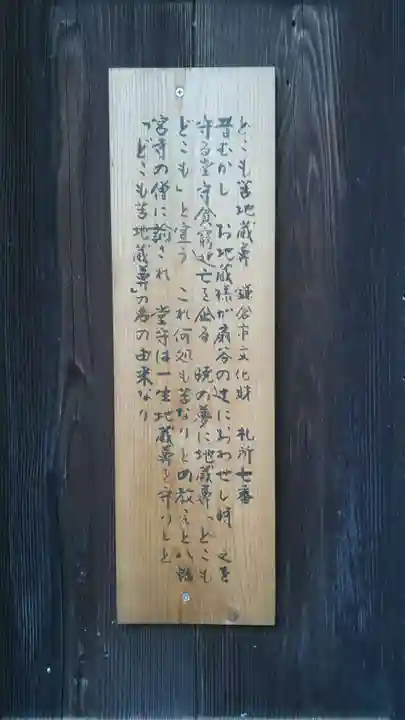 どこも苦地蔵尊 鎌倉市文化財 札所七番
昔むかし お地蔵様が扇谷の辻におわせし時 之を
守る堂守貧窮逃亡を企る 暁の夢に地蔵尊「どこも
どこも」と宣う これ何処も苦なりとの教えと八幡
宮寺の僧に諭され 堂守は一生地蔵尊を守りしと
「どこも苦地蔵尊」の名の由来なり